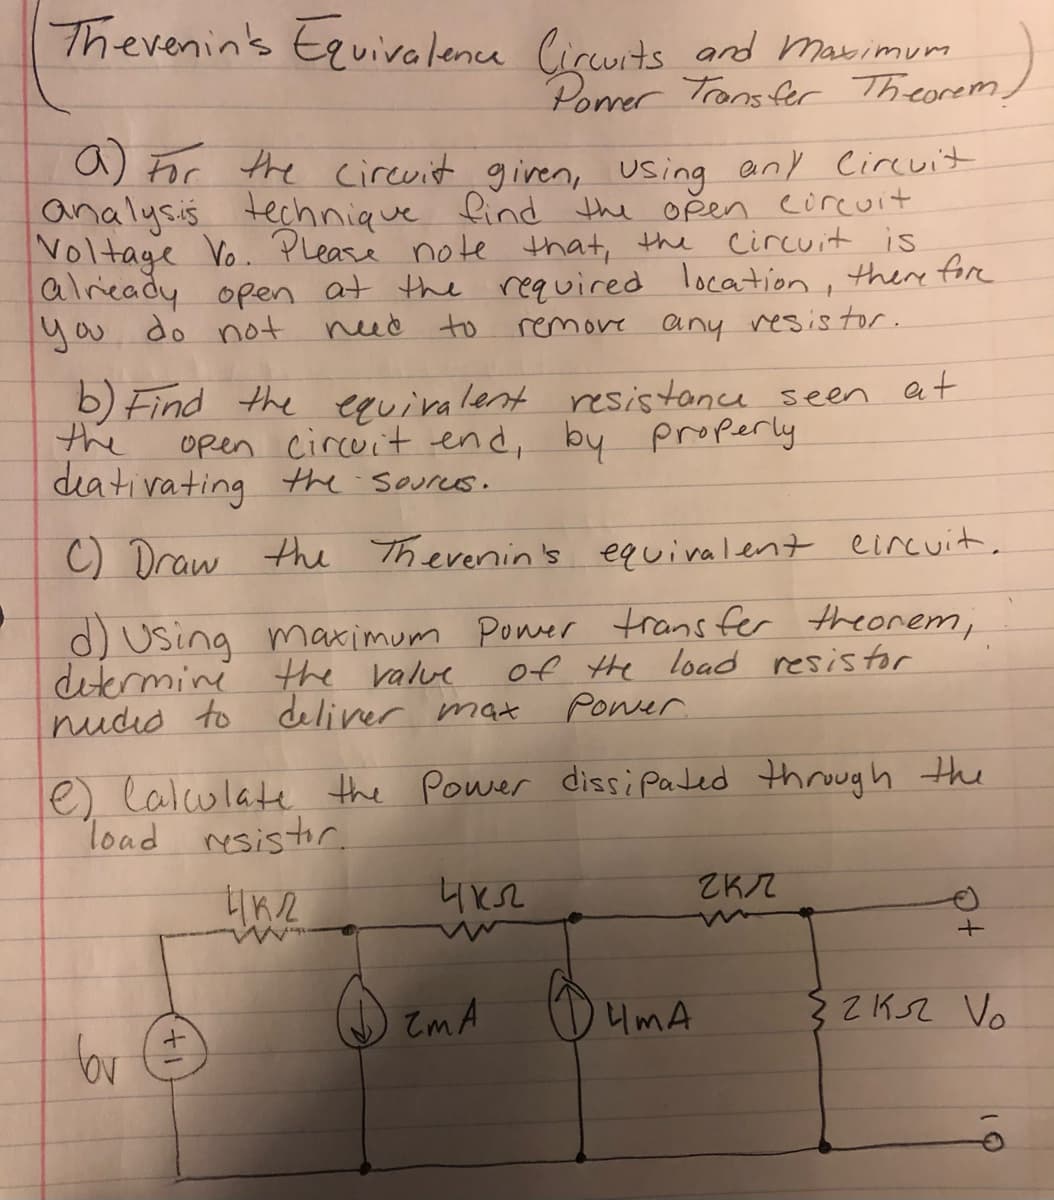 (Thevenin's Equivalence Circuits and Maximum
Power Transfer Theorem)
a) For the circuit given, using any circuit
analysis technique find the open circuit
Voltage Vo. Please note that, the circuit is
already open at the required location, therefore
you do not need to remove any resistor.
b) Find the equivalent resistance seen at
the open circuit end, by properly
deativating the sources.
C) Draw the Thevenin's equivalent circuit.
d) Using maximum power transfer theorem,
determine the value of the load resistor
needed to deliver max Power.
e) Calculate the Power dissipated through the
load resistor.
4KΩ 4KΩ 2KΩ
+
6v + - 2mA 4mA 2KΩ Vo
-